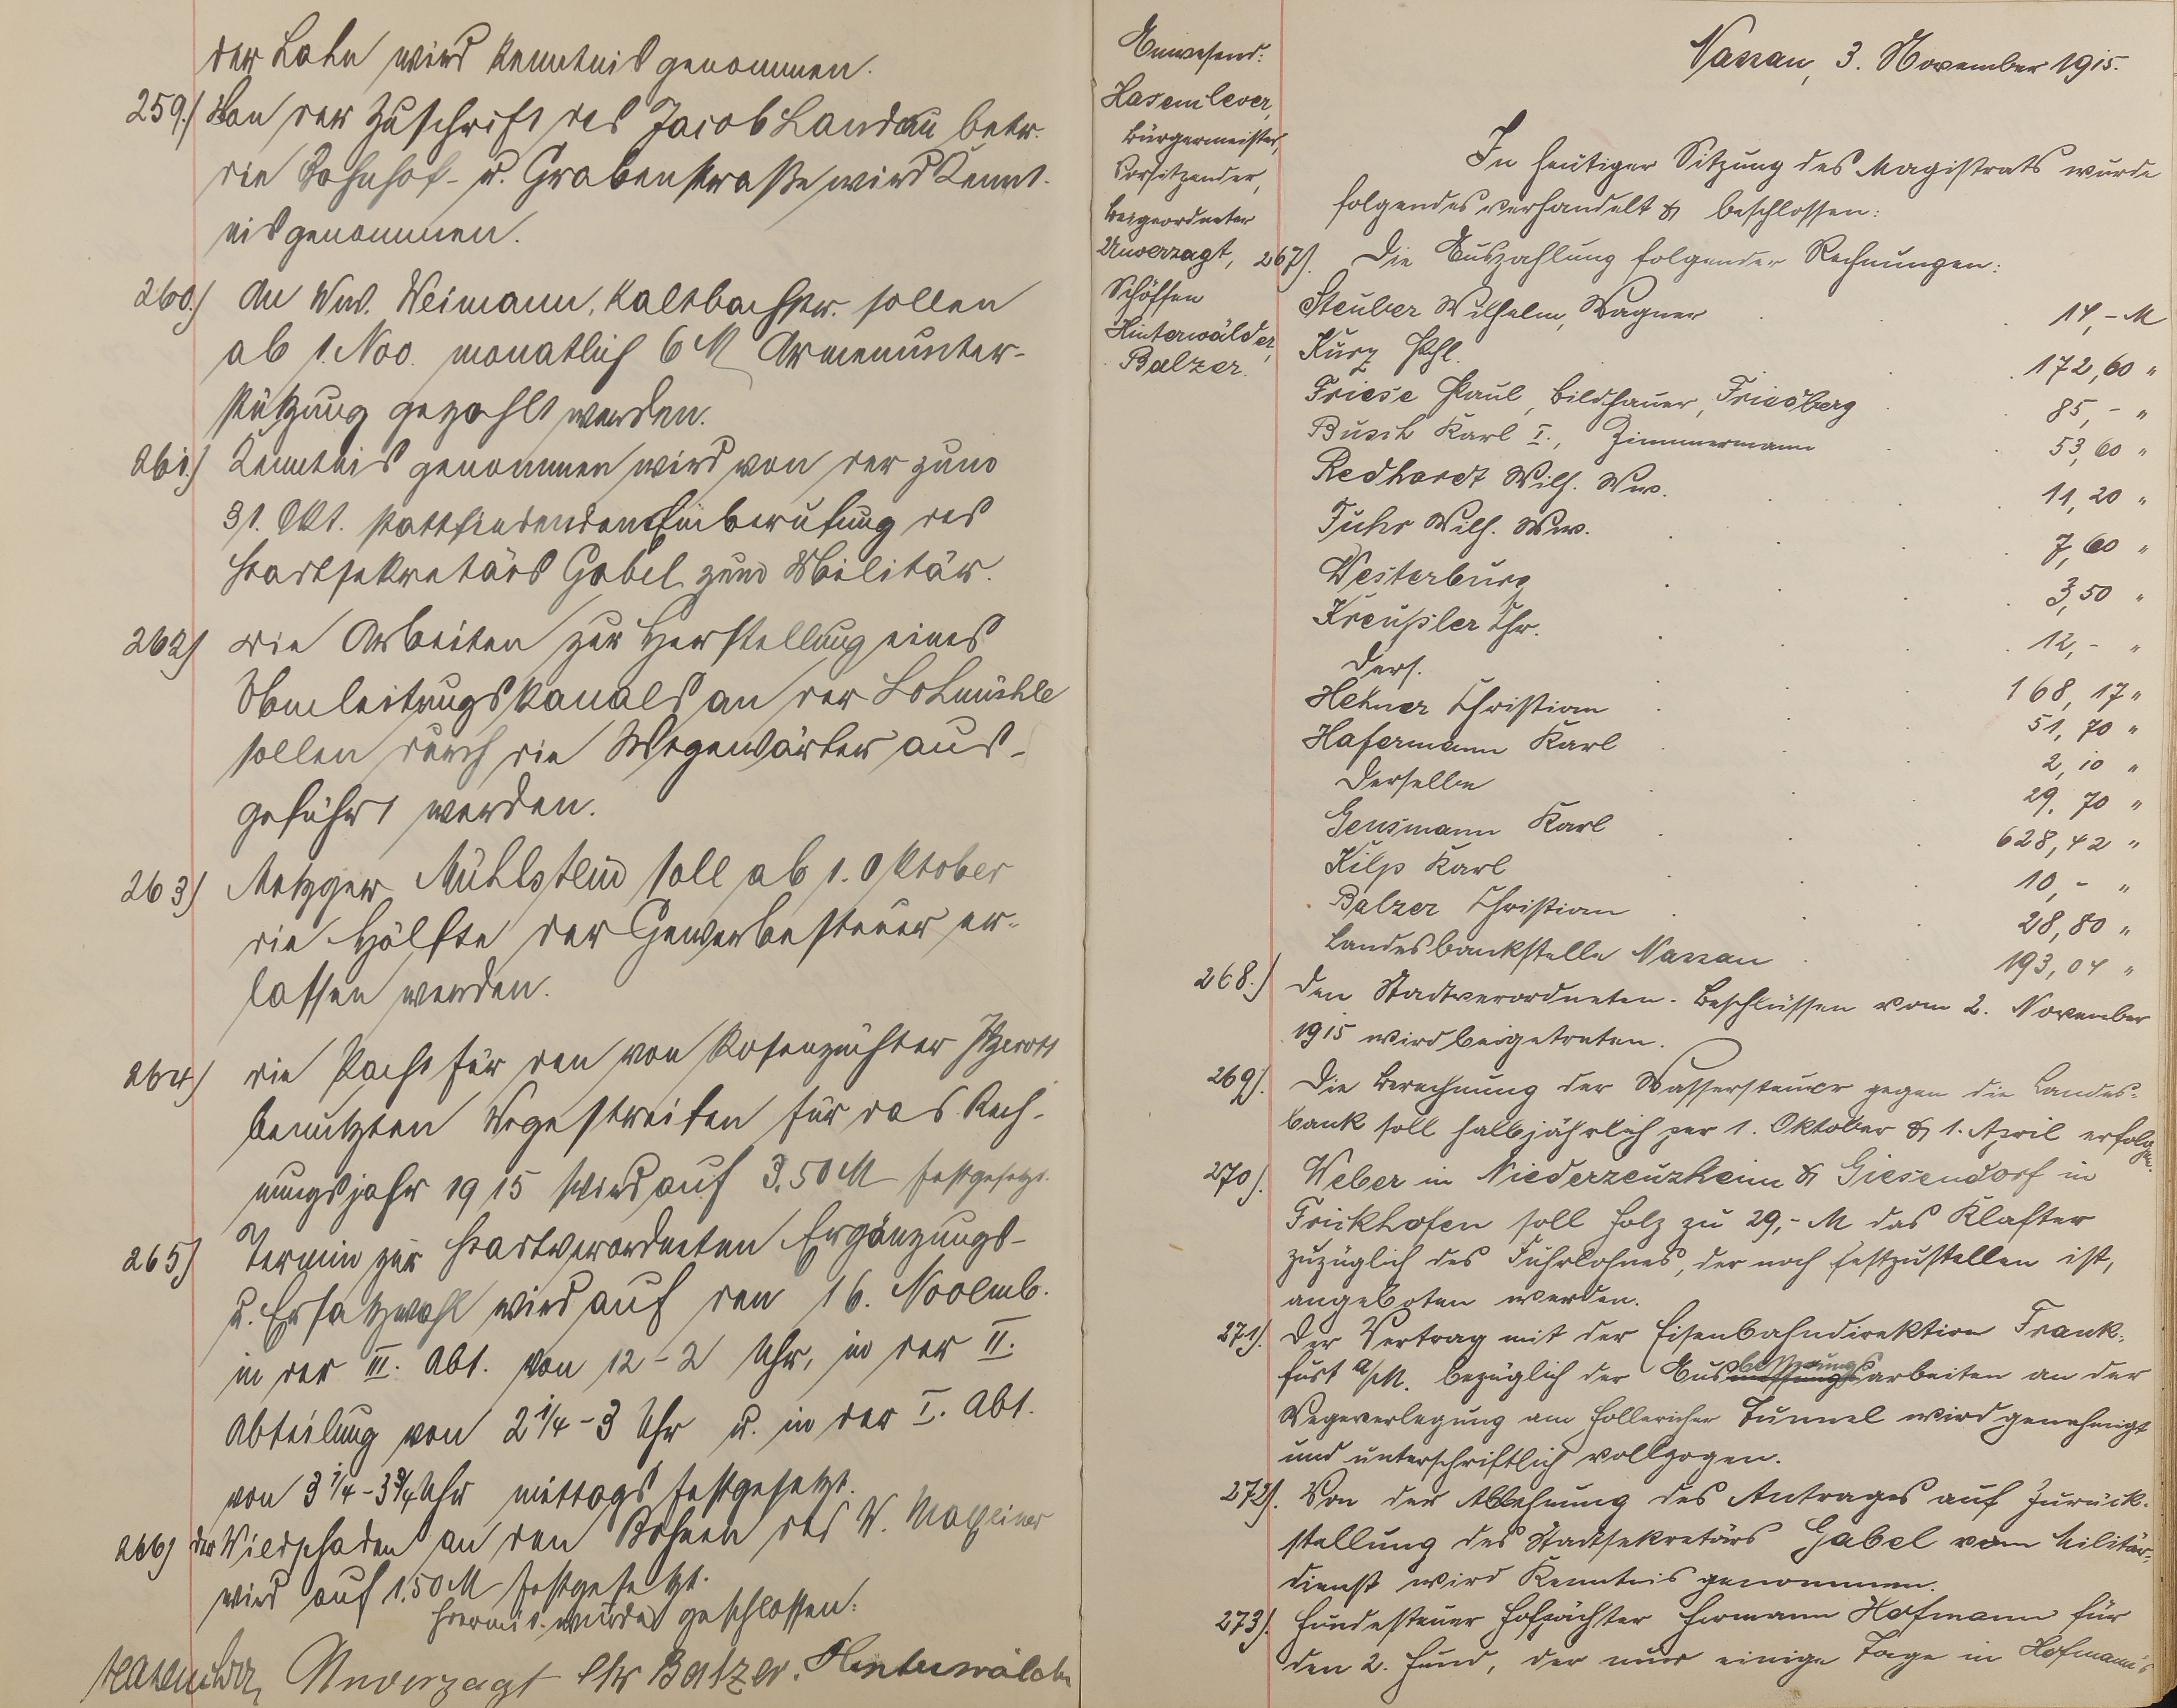 der Lahn wird Kenntnis genommen.
259.) Von der Zuschrift des Jacob Landau betr.
die Bahnhof- u. Grabenstraße wird Kennt-
nis genommen.
260.) An Ww. Weimann, Kaltbachstr. sollen
ab 1. Nov. monatlich 6 M Armenunter-
stützung gezahlt werden.
261.) Kenntnis genommen wird von der zum
31. Okt. stattfindenden Einberufung des
Stadtsekretärs Gabel zum Militär.
262) Die Arbeiten zur Herstellung eines
Umleitungskanals an der Lohmühle
sollen durch die Wegewärter aus-
geführt werden.
263) Metzger Mühlstein soll ab 1. Oktober
die Hälfte der Gewerbesteuer er-
lassen werden.
264) Die Pacht für den von Rosenzüchter
benutzten Wegestreifen für das Rech-
nungsjahr 1915 wird auf 3,50 M festgesetzt.
265) Termin zur Stadtverordneten Ergänzungs-
u. Ersatzwahl wird auf den 16. Novemb.
in der III. Abt. von 12-2 Uhr, in der II.
Abteilung von 2 1/4 - 3 Uhr u. in der I. Abt.
von 3 1/4 - 3 3/4 Uhr mittags festgesetzt.
266) Der Wildschaden an den Bohnen des W.
wird auf 1,50 M festgesetzt.
Hiermit wurde geschlossen.
Hasenclever, Unverzagt Chr Balzer. Hinterwälder
Anwesend:
Hasenclever,
Bürgermeister,
Vorsitzender,
Beigeordneter
Unverzagt,
Schöffen
Hinterwälder,
Balzer.
Nassau, 3. November 1915.
In heutiger Sitzung des Magistrats wurde
folgendes verhandelt & beschlossen:
267). Die Auszahlung folgender Rechnungen:
Steuber Wilhelm, Wagner 14,- M
Kurz Phl. 172,60 "
Friese Paul, Bildhauer, Friedberg 85,- "
Busch Karl I., Zimmermann 53,60 "
Redhardt Wilh. Ww. 11,20 "
Fuhr Wilh. Ww. 7,60 "
Westerburg 3,50 "
Kreußler Chr. 12,- "
Ders. 168,17 "
Hehner Christian 51,70 "
Hafermann Karl 2,10 "
Derselbe 29,70 "
Gensmann Karl 628,42 "
Kilp Karl 10,- "
Balzer Christian 28,80 "
Landesbankstelle Nassau 193,04 "
268.) Den Stadtverordneten-Beschlüssen vom 2. November
1915 wird beigetreten.
269). Die Berechnung der Wassersteuer gegen die Landes-
bank soll halbjährlich per 1. Oktober & 1. April erfolgen.
270). Weber in Niederzeuzheim & Giesendorf in
Frickhofen soll Holz zu 29,- M das Klafter
zuzüglich des Fuhrlohnes, der noch festzustellen ist,
angeboten werden.
271). Der Vertrag mit der Eisenbahndirektion Frank-
furt a/M. bezüglich der Ausbesserungsarbeiten an der
Wegeverlegung am Hollericher Tunnel wird genehmigt
und unterschriftlich vollzogen.
272). Von der Ablehnung des Antrages auf Zurück-
stellung des Stadtsekretärs Gabel vom Militär-
dienst wird Kenntnis genommen.
273). Hundesteuer Hofpächter Hermann Hofmann für
den 2. Hund, der nur einige Tage in Hofmann's